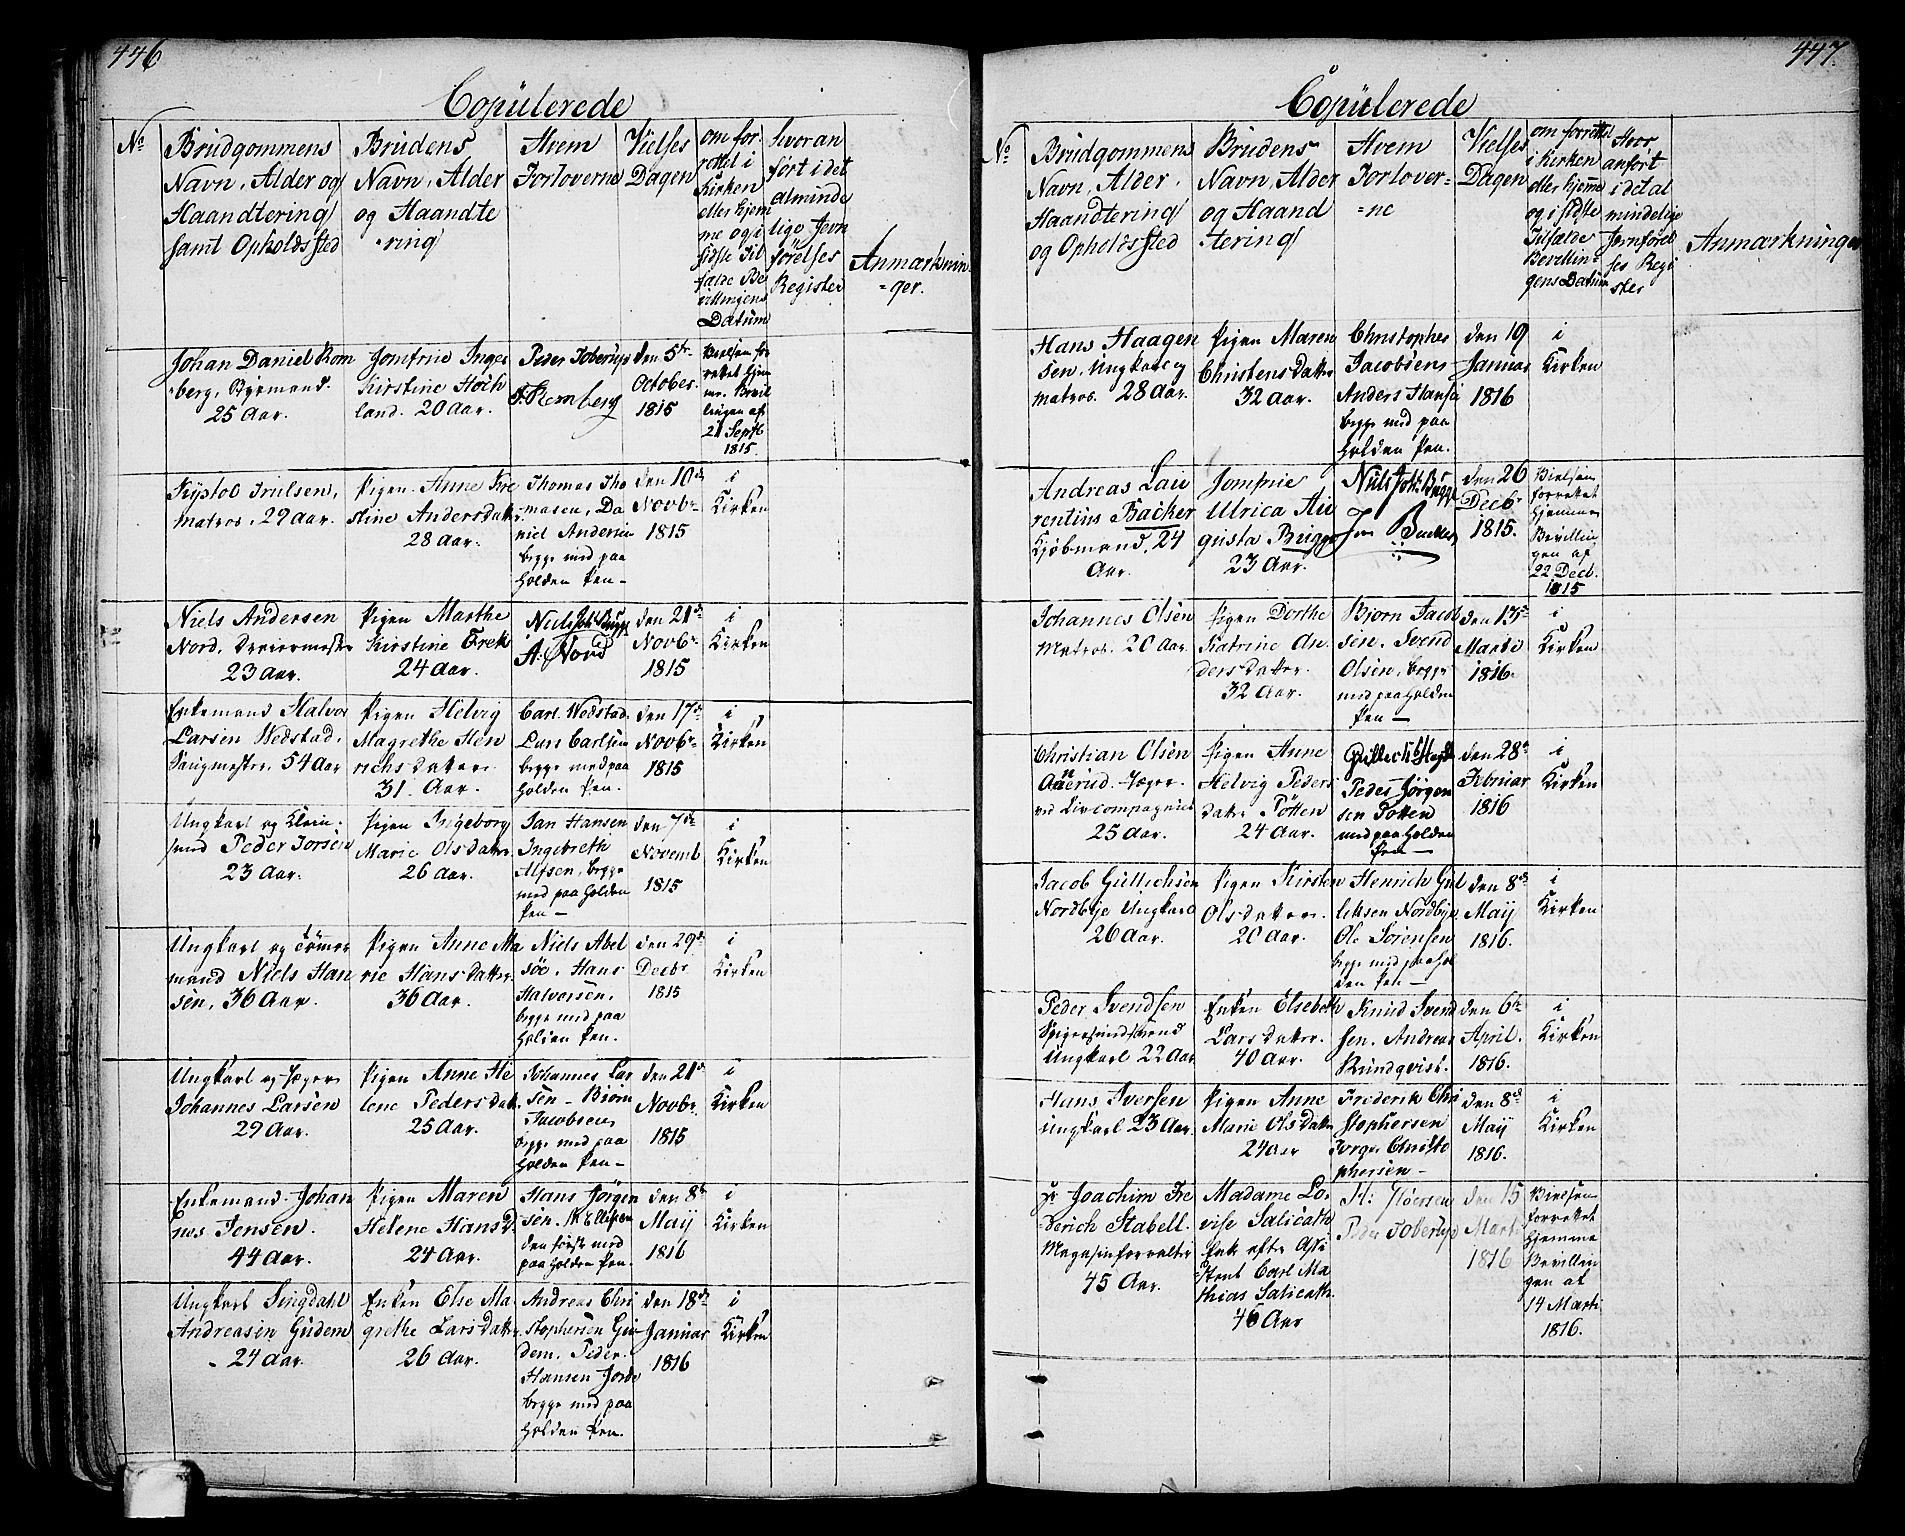 446
Copulerede
No
Brudgommens
Navn, Alder og
Haandtering
samt Opholdssted
Brudens
Navn, Alder
og Haandte
ring
Hvem
Forloverne
Vielses
Dagen
om for
rettet i
Kirken
eller hjem
me og i
sidste Til
fælde Be
villingens
Datum
hvor an
ført i det
alminde
lige Jevn
førelses
Register
Anmærknin
=ger.
Johan Daniel Rom
berg, Byemand.
25 Aar.
Jomfrue Inger
Kirstine Hoch
land. 20 Aar.
Peder Toberup
Romberg
den 5te
October.
1815
Vielsen for
rettet hjem
me. Bevil
lingen af
21 Septb
1815.
Matros, 29 Aar.
Pigen Anne Kir
stine Andersdatter
28 Aar.
Thomas Tho
masen, Da
niel Andersen
begge med paa
holden Pen-
den 10de
Novbr
1815
i
Kirken
Niels Andersen
Nord,
23 Aar.
Pigen Marthe
Kirstine
24 Aar.
Niels Joh: Bugge
A. Nord
den 21de
Novbr
1815
i
Kirken
Enkemand Halvor
Larsen Wedstad,
Saugmester, 54 Aar
Pigen Helvig
Magrethe Hen
richsdatter
31 Aar.
Carl Wedstad.
Lars Carlsen
begge med paa
holden Pen.
den 17de
Novbr
1815
i
Kirken
Ungkarl og Klein-
smed Peder
23 Aar.
Pigen Ingeborg
Marie Olsdatter
26 Aar.
Jan Hansen
Ingebreth
Alfsen, begge
med paa holden
Pen-
den 7de
Novemb
1815
i
Kirken
Ungkarl og Tømmer
mand Niels Han
sen, 36 Aar.
Pigen Anne Ma
rie Hansdatter
36 Aar.
Niels Abel
söe, Hans
Halvorsen,
begge med paa
holden Pen.
den 29de
Decbr
1815
i
Kirken
Ungkarl og Jæger
Johannes Larsen
29 Aar.
Pigen Anne He
lene Pedersdatter
25 Aar.
Johannes Lar
sen - Biørn
Jacobsen
begge med paa
holden Pen-
den 21de
Novbr.
1815
i
Kirken
Enkemand Johan
nes Jensen.
44 Aar.
Pigen Maren
Helene Hansd.
24 Aar.
Hans Jørgen
sen. M Ellefsen
den første med
paaholden Pen.
den 8de
May
1816
i
Kirken
Ungkarl Singdahl
Andreasen Gudem
24 Aar.
Enken Else Ma
grethe Larsdatter
26 Aar.
Andreas Chri
stophersen Gu
dem. Peder
Hansen Jorde
begge med paa
holden Pen.
den 18de
Januar
1816
i
Kirken
447.
Copulerede
No
Brudgommens
Navn, Alder,
Haandtering
og Opholdssted
Brudens
Navn, Alder
og Haand
tering
Hvem
Forlover=
=ne
Vielses
Dagen
om forrettet
i Kirken
eller hjemme
og i sidste
Tilfælde
Bevillin=
gens Datum
Hvor
anført
i det al
mindelige
Jevnførel
ses Regi
ster
Anmærkninger
Hans Haagen
sen, Ungkarl og
Matros. 28 Aar.
Pigen Maren
Christensdatter
32 Aar.
Christopher
Jacobsen
Anders Hansen
begge med paa
holden Pen.
den 19
Januar
1816
i
Kirken
Andreas Lau
rentius Backer
Kjøbmand, 24
Aar.
Jomfrue
Ulrica Au
gusta Bugge
23 Aar.
Niels Joh: Bugge
den 26
Decbr
1815.
Vielsen
forrettet
hjemme
Bevillin
gen af
22 Decb.
1815
Johannes Olsen
Matros. 20 Aar.
Pigen Dorthe
Katrine An
dersdatter.
32 Aar.
Bjorn Jacob
sen, Svend
Olsen, begge
med paaholden
Pen-
den 13de
Martz
1816.
i
Kirken
Christian Olsen
Jæger
ved Livcompagniet
25 Aar.
Pigen Anne
Helvig Peders
datter Totten
24 Aar.
Peder Jørgen
sen Totten
med paaholden
Pen-
den 28de
Februar
1816
i
Kirken
Jacob Gullichsen
Nordbye Ungkarl
26 Aar.
Pigen Kirsten
Olsdatter.
20 Aar.
Henrich Gul
lichsen Nordbye
Ole Sørensen
begge med paahol
den Pen-
den 8de
May
1816.
i
Kirken
Peder Svendsen
Ungkarl 22 Aar
Enken Elsebeth
Larsdatter.
40 Aar.
Knud Svend
sen, Andreas
Rundqvist.
den 6te
April.
1816.
i
Kirken
Hans Iversen
Ungkarl 23 Aar.
Pigen Anne
Marie Olsdatter
24 Aar
Frederik Chri
stophersen
Jørgen Christo
phersen-
den 8de
May
1816.
i
Kirken
Hr Joachim Fre
derich Stabell.
Magasinforvalter
45 Aar.
Madame Lo-
vise Salicath
Enke efter Assi
stent Carl Ma
thias Salicath.
46 Aar
Peder Toberup
den 15
Marti
1816
Vielsen
forrettet
hjemme
Bevillin
gen af
14 Marti
1816.